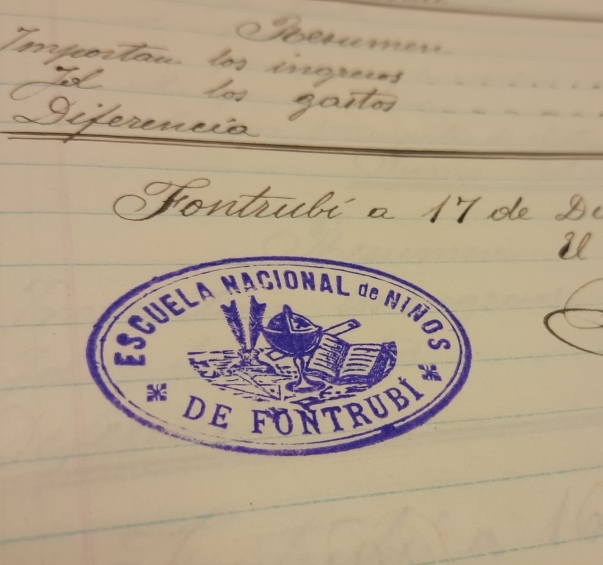 Resumen
Importan los ingresos
Id los gastos
Diferencia
Fontrubí a 17 de Di
El
ESCUELA NACIONAL de NIÑOS
DE FONTRUBÍ